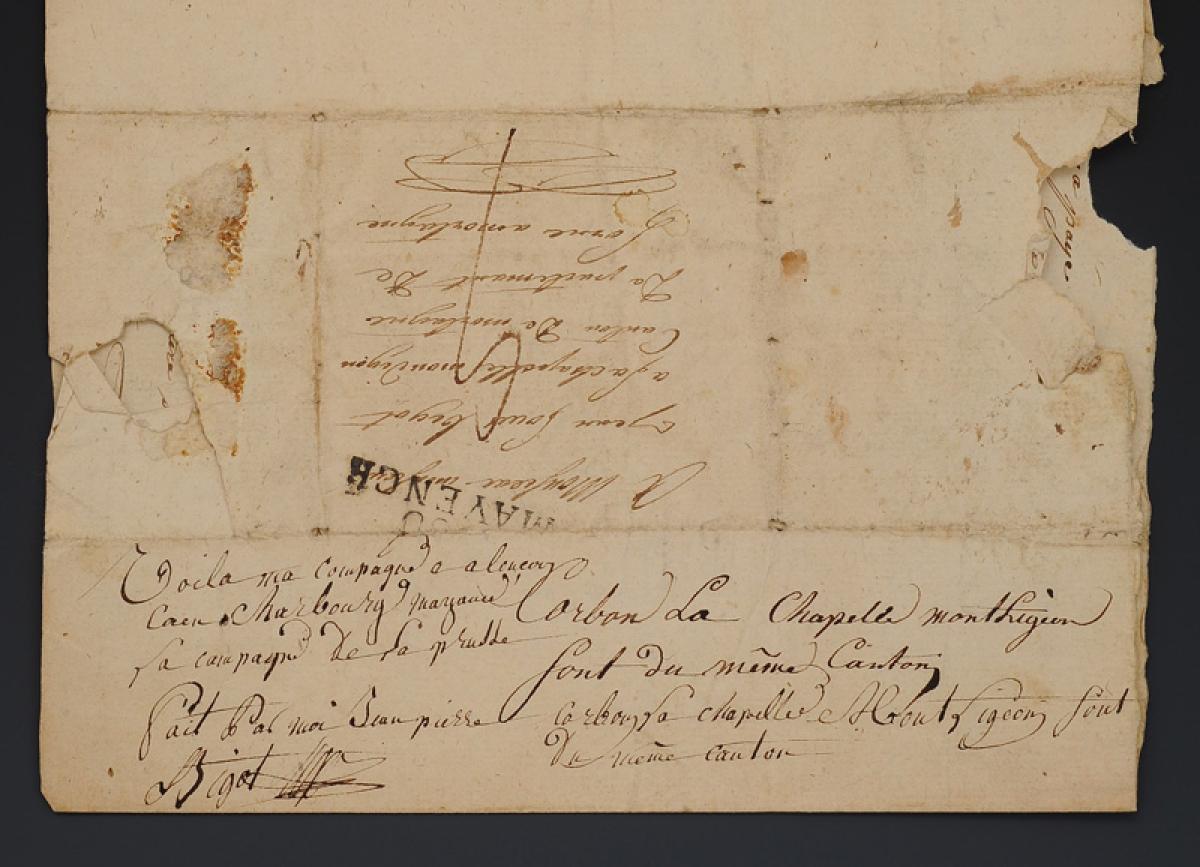 A Monsieur
jean Louis begot
a La chapelle mondigon
Canton De mortagne
De partemant De
Lorne a mortagne
MAYENCE
a paye
Voila ma compagne a alencon
Caen Charbourg mayance
La campagne de la prusse
Fait Par moi Jean pierre
Bigot
Corbon La Chapelle monthigeon
sont du même Canton
Corbon La chapelle Montligeon sont
du même canton